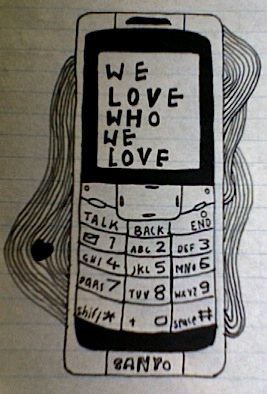 WE
LOVE
WHO
WE
LOVE
TALK BACK END
1 ABC 2 DEF 3
GHI 4 JKL 5 MNO 6
PQRS 7 TUV 8 WXYZ 9
shift/* + 0 space #
SANYO